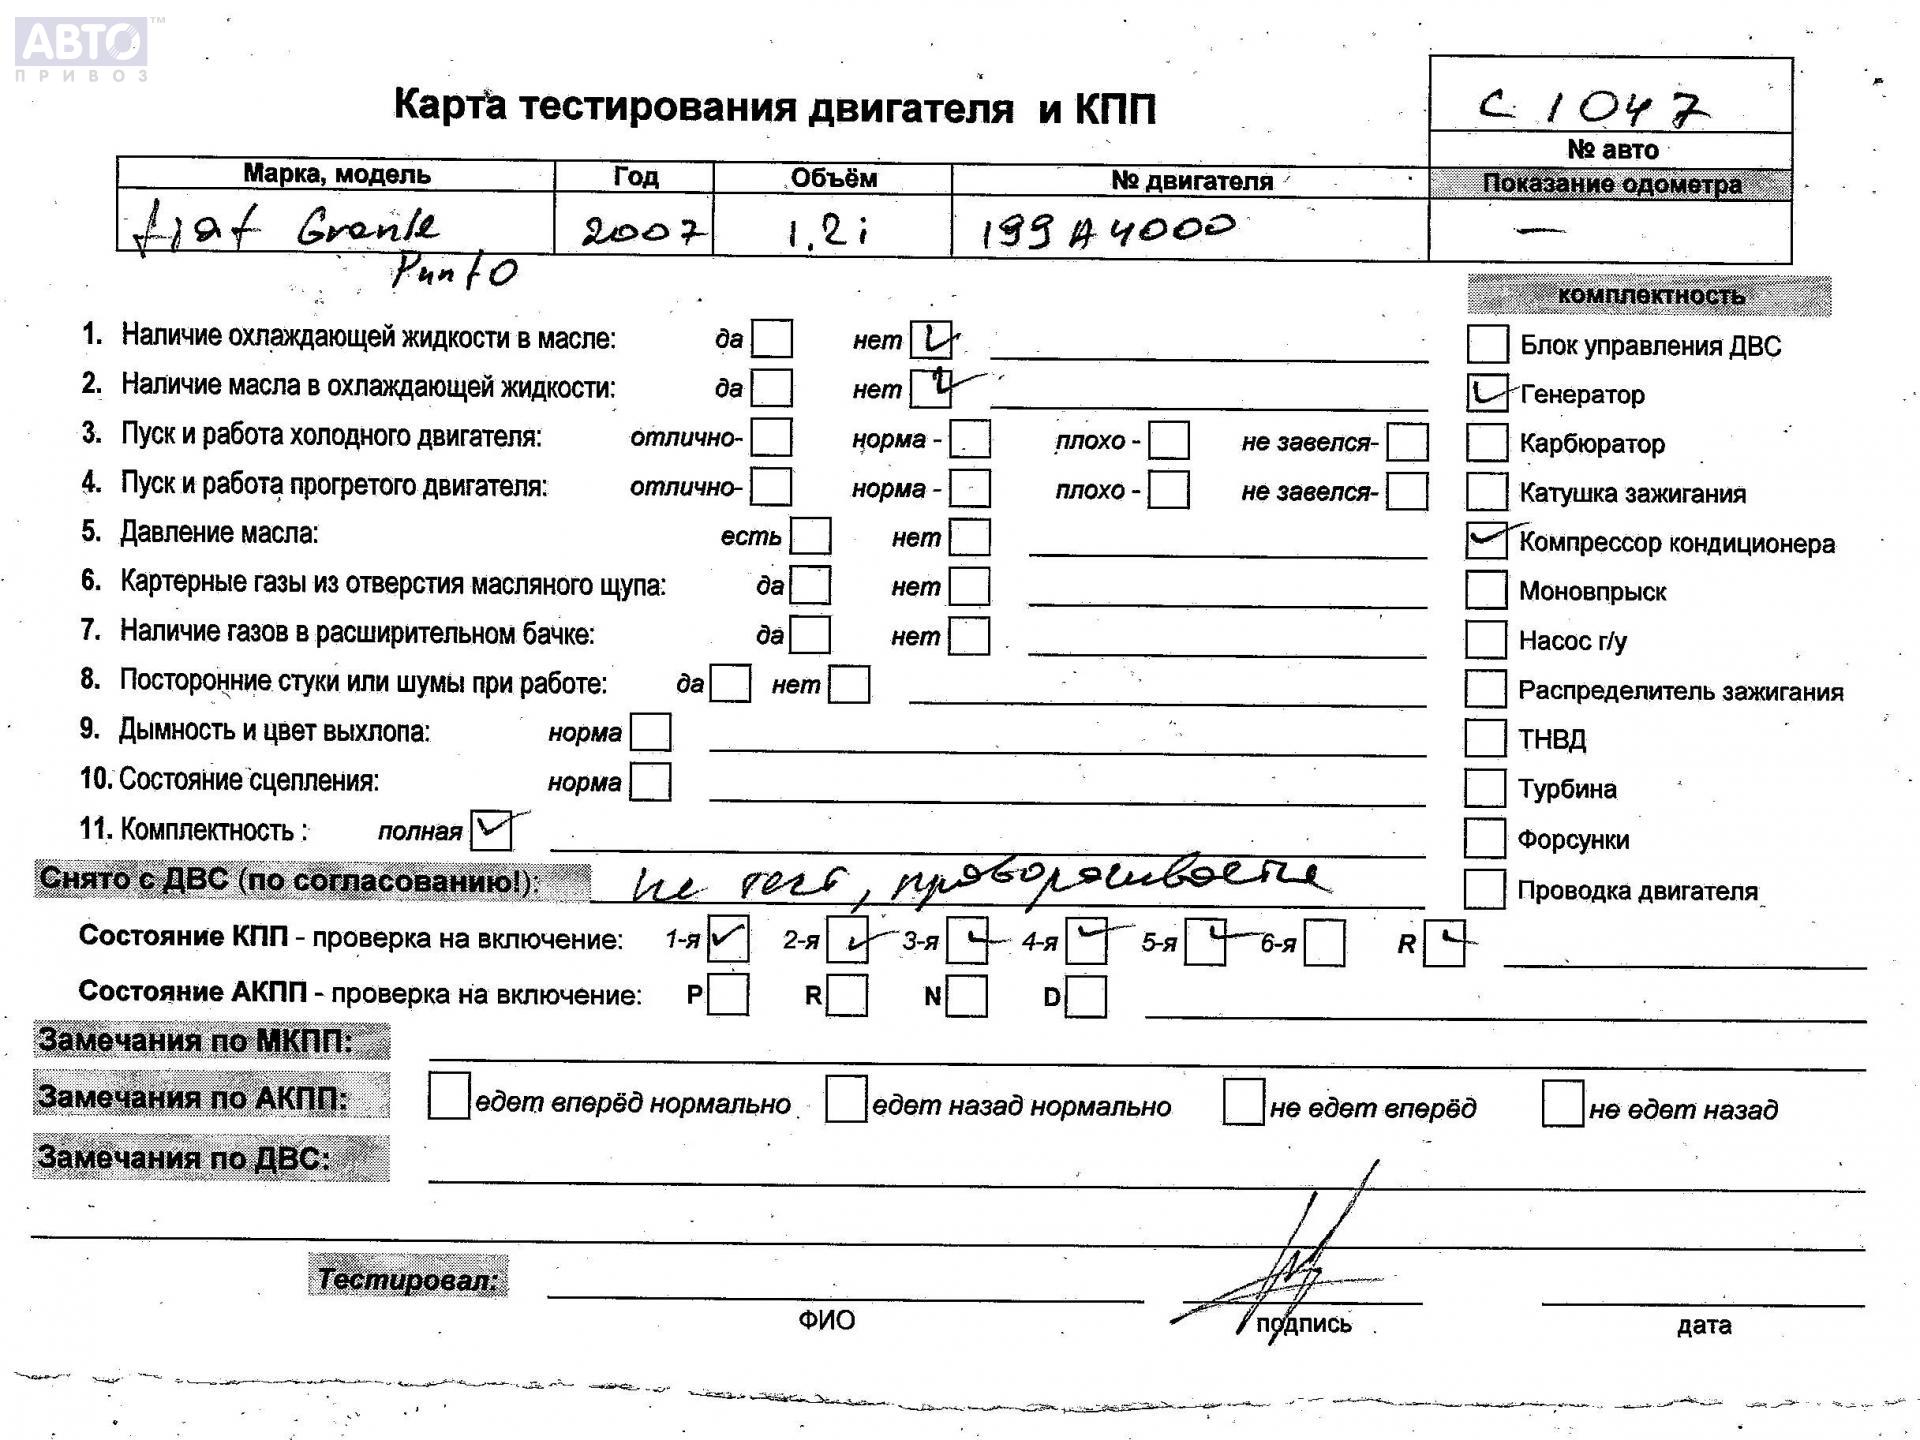 АВТО™
ПРИВОЗ
Карта тестирования двигателя и КПП
С 1047
№ авто
Марка, модель Год Объём № двигателя Показание одометра
fiat Grande 2007 1.2i 199A4000 —
Punto
комплектность
1. Наличие охлаждающей жидкости в масле: да нет
Блок управления ДВС
2. Наличие масла в охлаждающей жидкости: да нет
Генератор
3. Пуск и работа холодного двигателя: отлично- норма - плохо - не завелся-
Карбюратор
4. Пуск и работа прогретого двигателя: отлично- норма - плохо - не завелся-
Катушка зажигания
5. Давление масла: есть нет
Компрессор кондиционера
6. Картерные газы из отверстия масляного щупа: да нет
Моновпрыск
7. Наличие газов в расширительном бачке: да нет
Насос г/у
8. Посторонние стуки или шумы при работе: да нет
Распределитель зажигания
9. Дымность и цвет выхлопа: норма
ТНВД
10. Состояние сцепления: норма
Турбина
11. Комплектность : полная
Форсунки
Снято с ДВС (по согласованию!): не тест,
Проводка двигателя
Состояние КПП - проверка на включение: 1-я 2-я 3-я 4-я 5-я 6-я R
Состояние АКПП - проверка на включение: P R N D
Замечания по МКПП:
Замечания по АКПП: едет вперёд нормально едет назад нормально не едет вперёд не едет назад
Замечания по ДВС:
Тестировал:
ФИО подпись дата